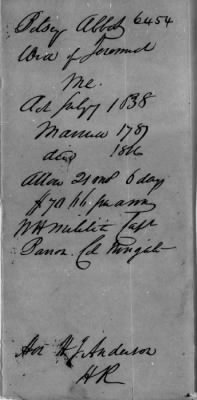 Betsey Abbot 6454
Wid of Jeremiah
Me.
Act July 7 1838
Married 1787
died 18
Allow 21 mos 6 day
$70.66 per ann
NH militia Capt
Col Wingate
Hon H J Anderson
HR